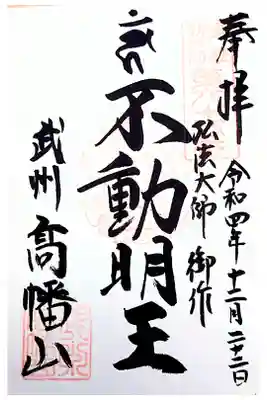 奉拝
令和四年十二月二十二日
弘法大師 御作
不動明王
武州 高幡山